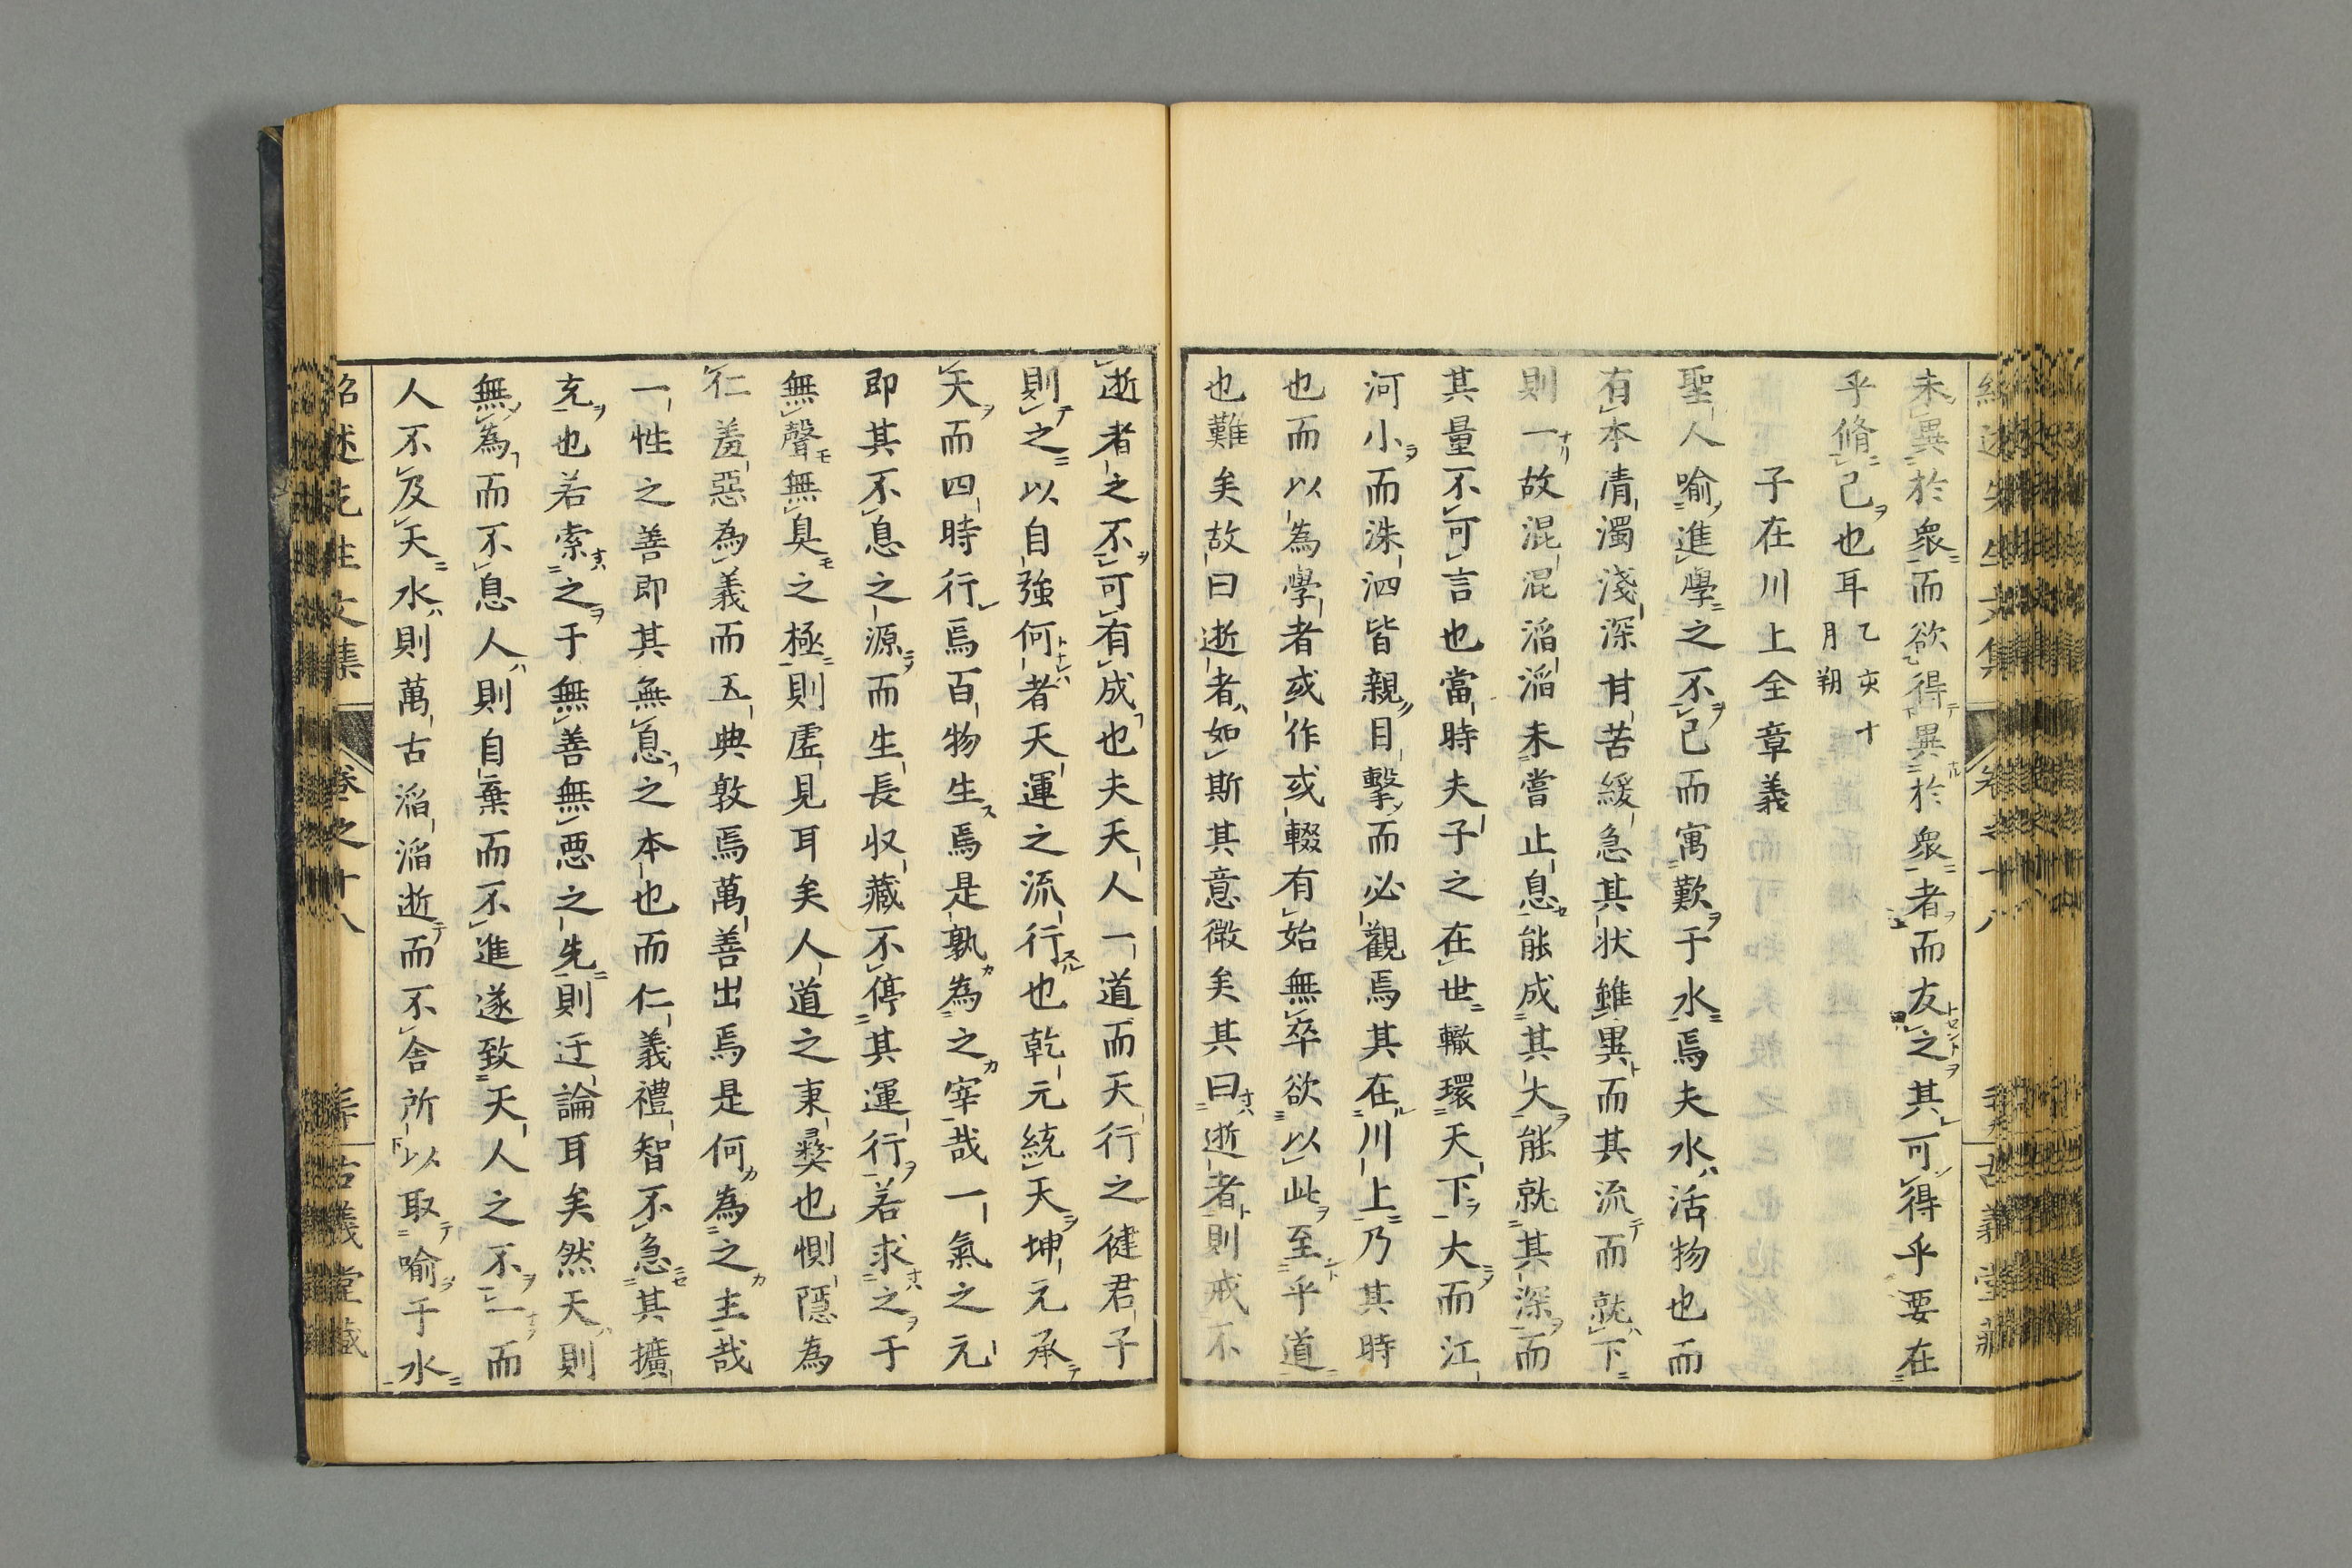 未異於衆而欲得異於衆者而友之其可得乎要在
乎脩己也耳乙亥十月朔
子在川上全章義
聖人喻進學之不已而寓歎于水焉夫水活物也而
有本清濁淺深甘苦緩急其状雖異而其流而就下
則一故混混滔滔未嘗止息能成其大能就其深而
其量不可言也當時夫子之在世轍環天下大而江
河小而洙泗皆親目擊而必觀焉其在川上乃其時
也而以為學者或作或輟有始無卒欲以此至乎道
也難矣故曰逝者如斯其意微矣其曰逝者則戒不
逝者之不可有成也夫天人一道而天行之健君子
則之以自強何者天運之流行也乾元統天坤元承
天而四時行焉百物生焉是孰為之宰哉一氣之元
即其不息之源而生長収藏不停其運行若求之于
無聲無臭之極則虚見耳矣人道之秉彝也惻隱為
仁羞惡為義而五典敦焉萬善出焉是何為之主哉
一性之善即其無息之本也而仁義禮智不急其擴
充也若索之于無善無悪之先則迂論耳矣然天則
無為而不息人則自棄而不進遂致天人之不一而
人不及天水則萬古滔滔逝而不舎所以取喻于水
紹述先生文集
卷之十八
古義堂藏